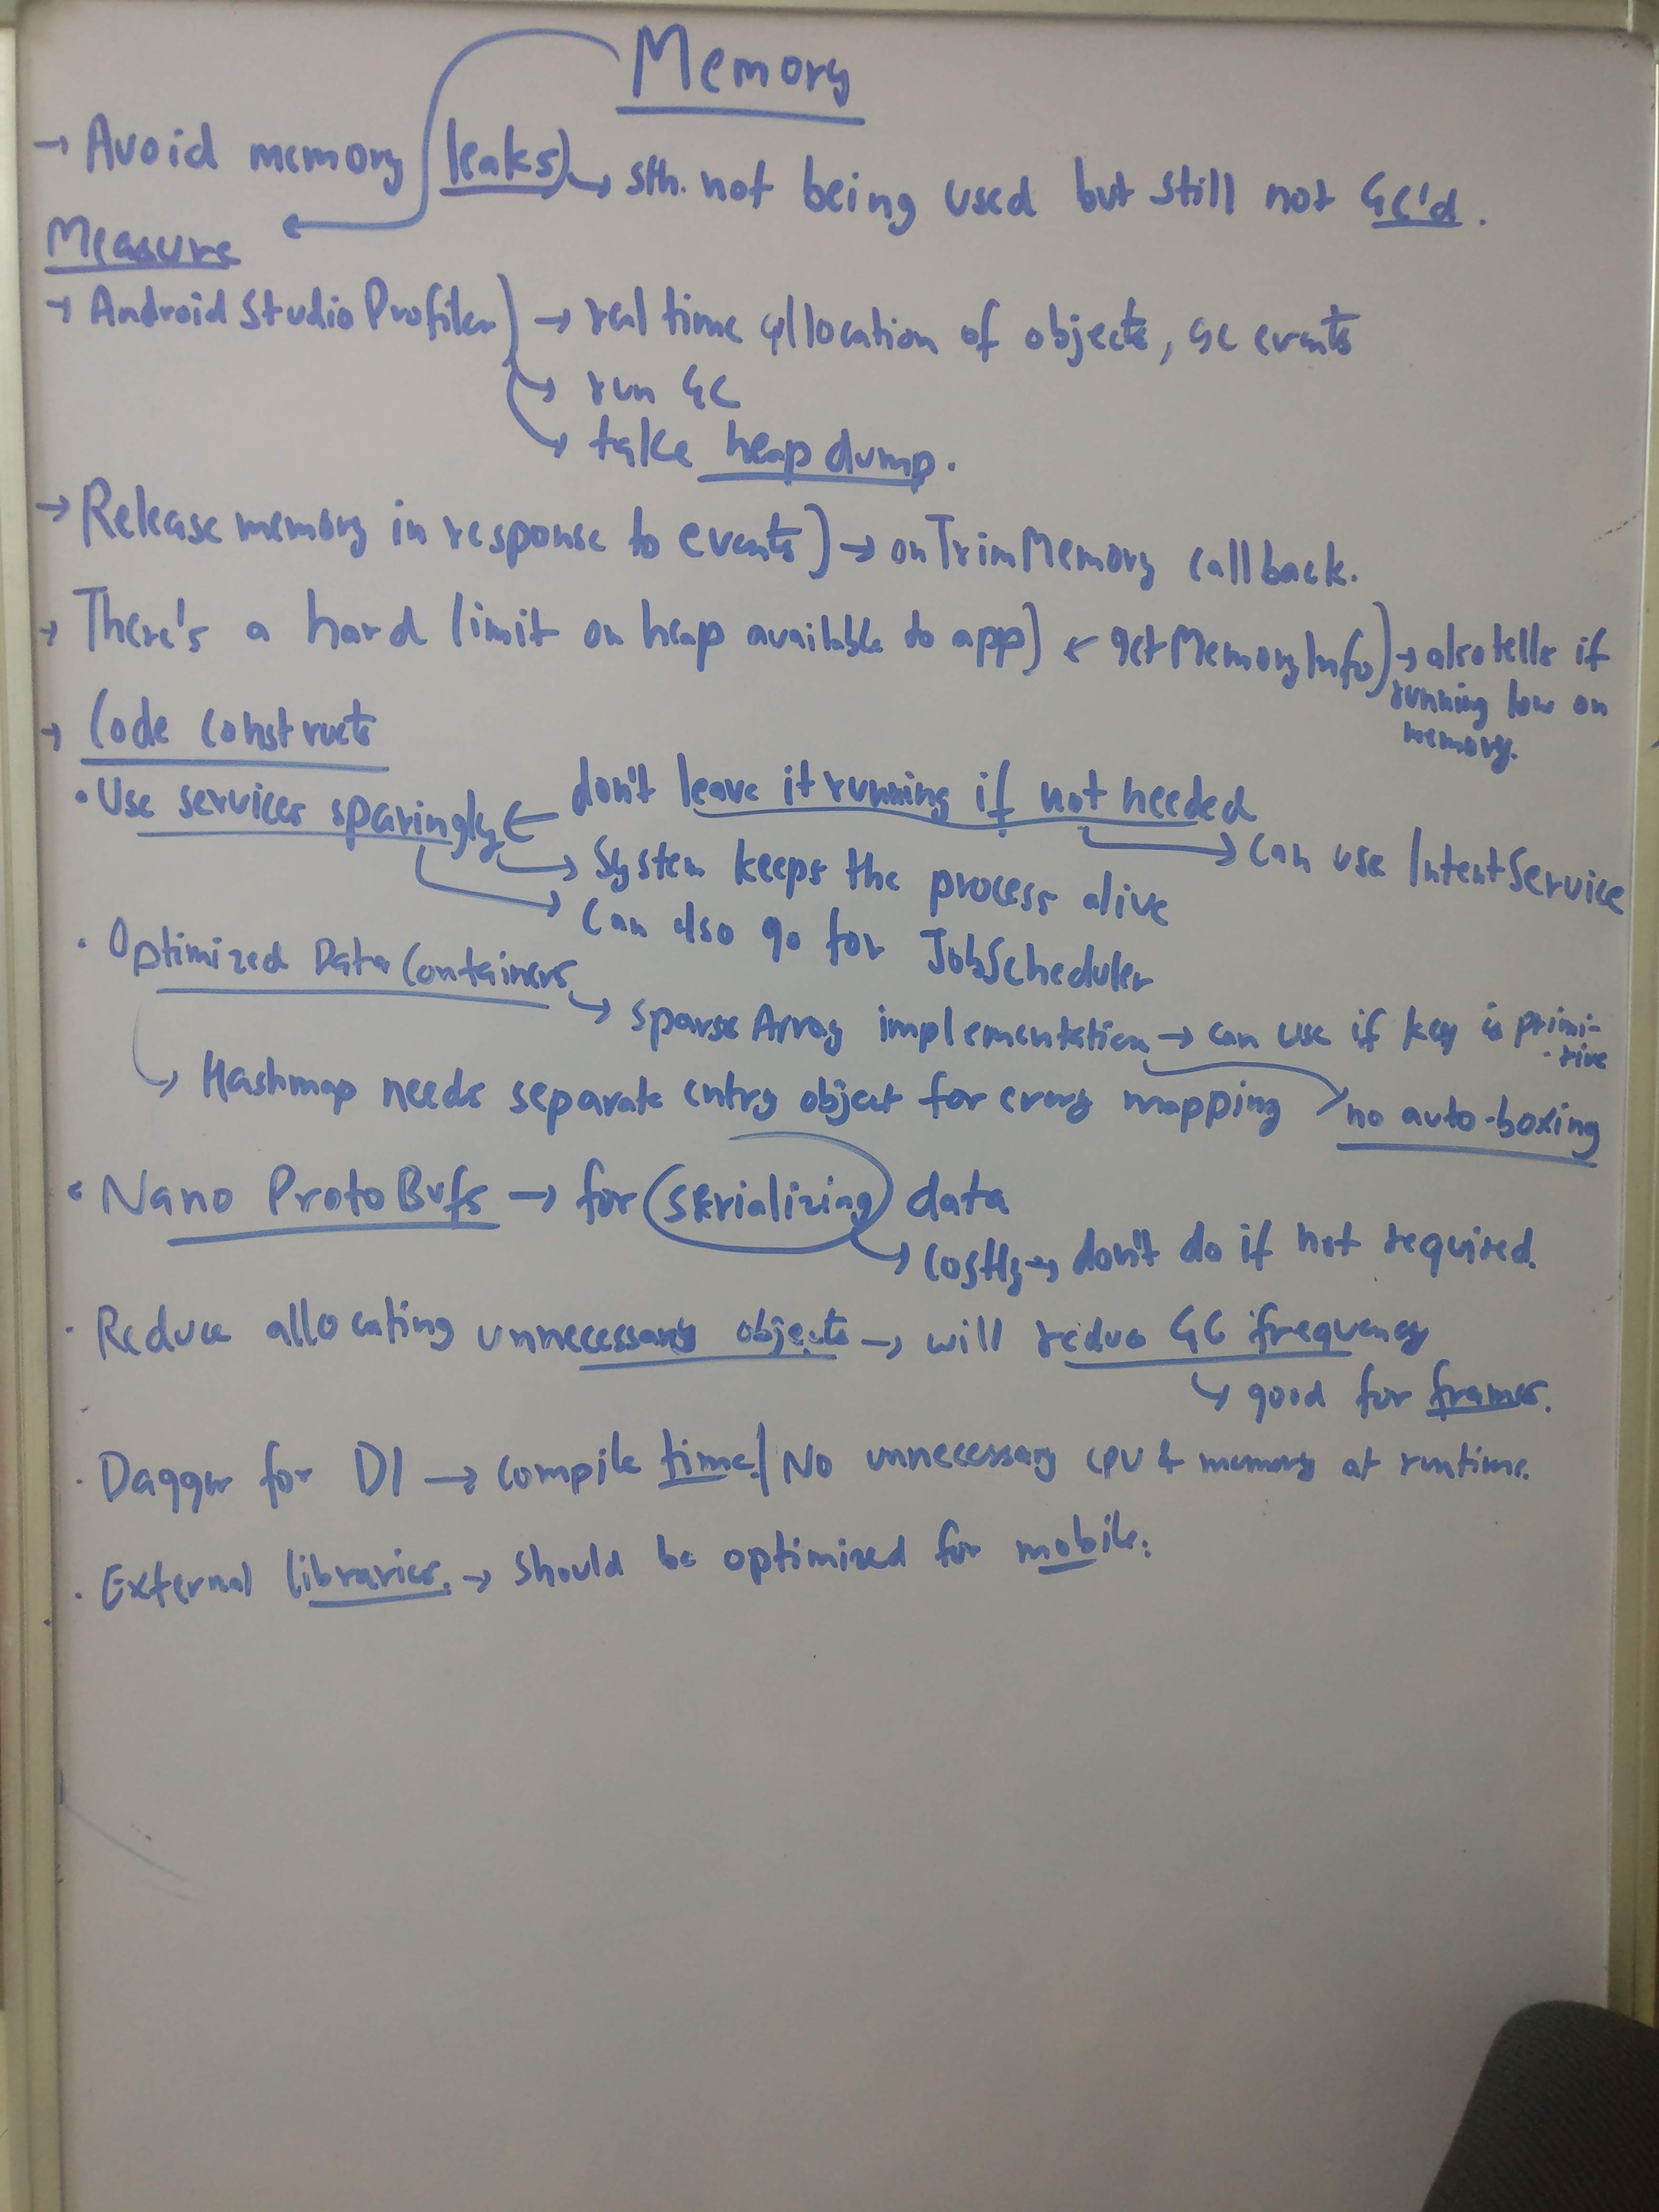 Memory
→ Avoid memory leaks) → sth. not being used but still not GC'd.
Measure
→ Android Studio Profiler) → real time allocation of objects, GC events
→ run GC
→ take heap dump.
→ Release memory in response to events) → onTrimMemory callback.
→ There's a hard limit on heap available to app) ← getMemoryInfo) → also tells if
running low on
memory.
→ Code constructs
• Use services sparingly ← don't leave it running if not needed
→ can use IntentService
→ System keeps the process alive
→ can also go for JobScheduler
• Optimized Data Containers
→ sparseArray implementation → can use if key is primi-
tive
→ Hashmap needs separate entry object for every mapping → no auto-boxing
• Nano ProtoBufs → for serializing data
→ costly → don't do if not required.
• Reduce allocating unnecessary objects → will reduce GC frequency
→ good for frames.
• Dagger for DI → compile time / No unnecessary CPU & memory at runtime.
• External libraries. → should be optimized for mobile.